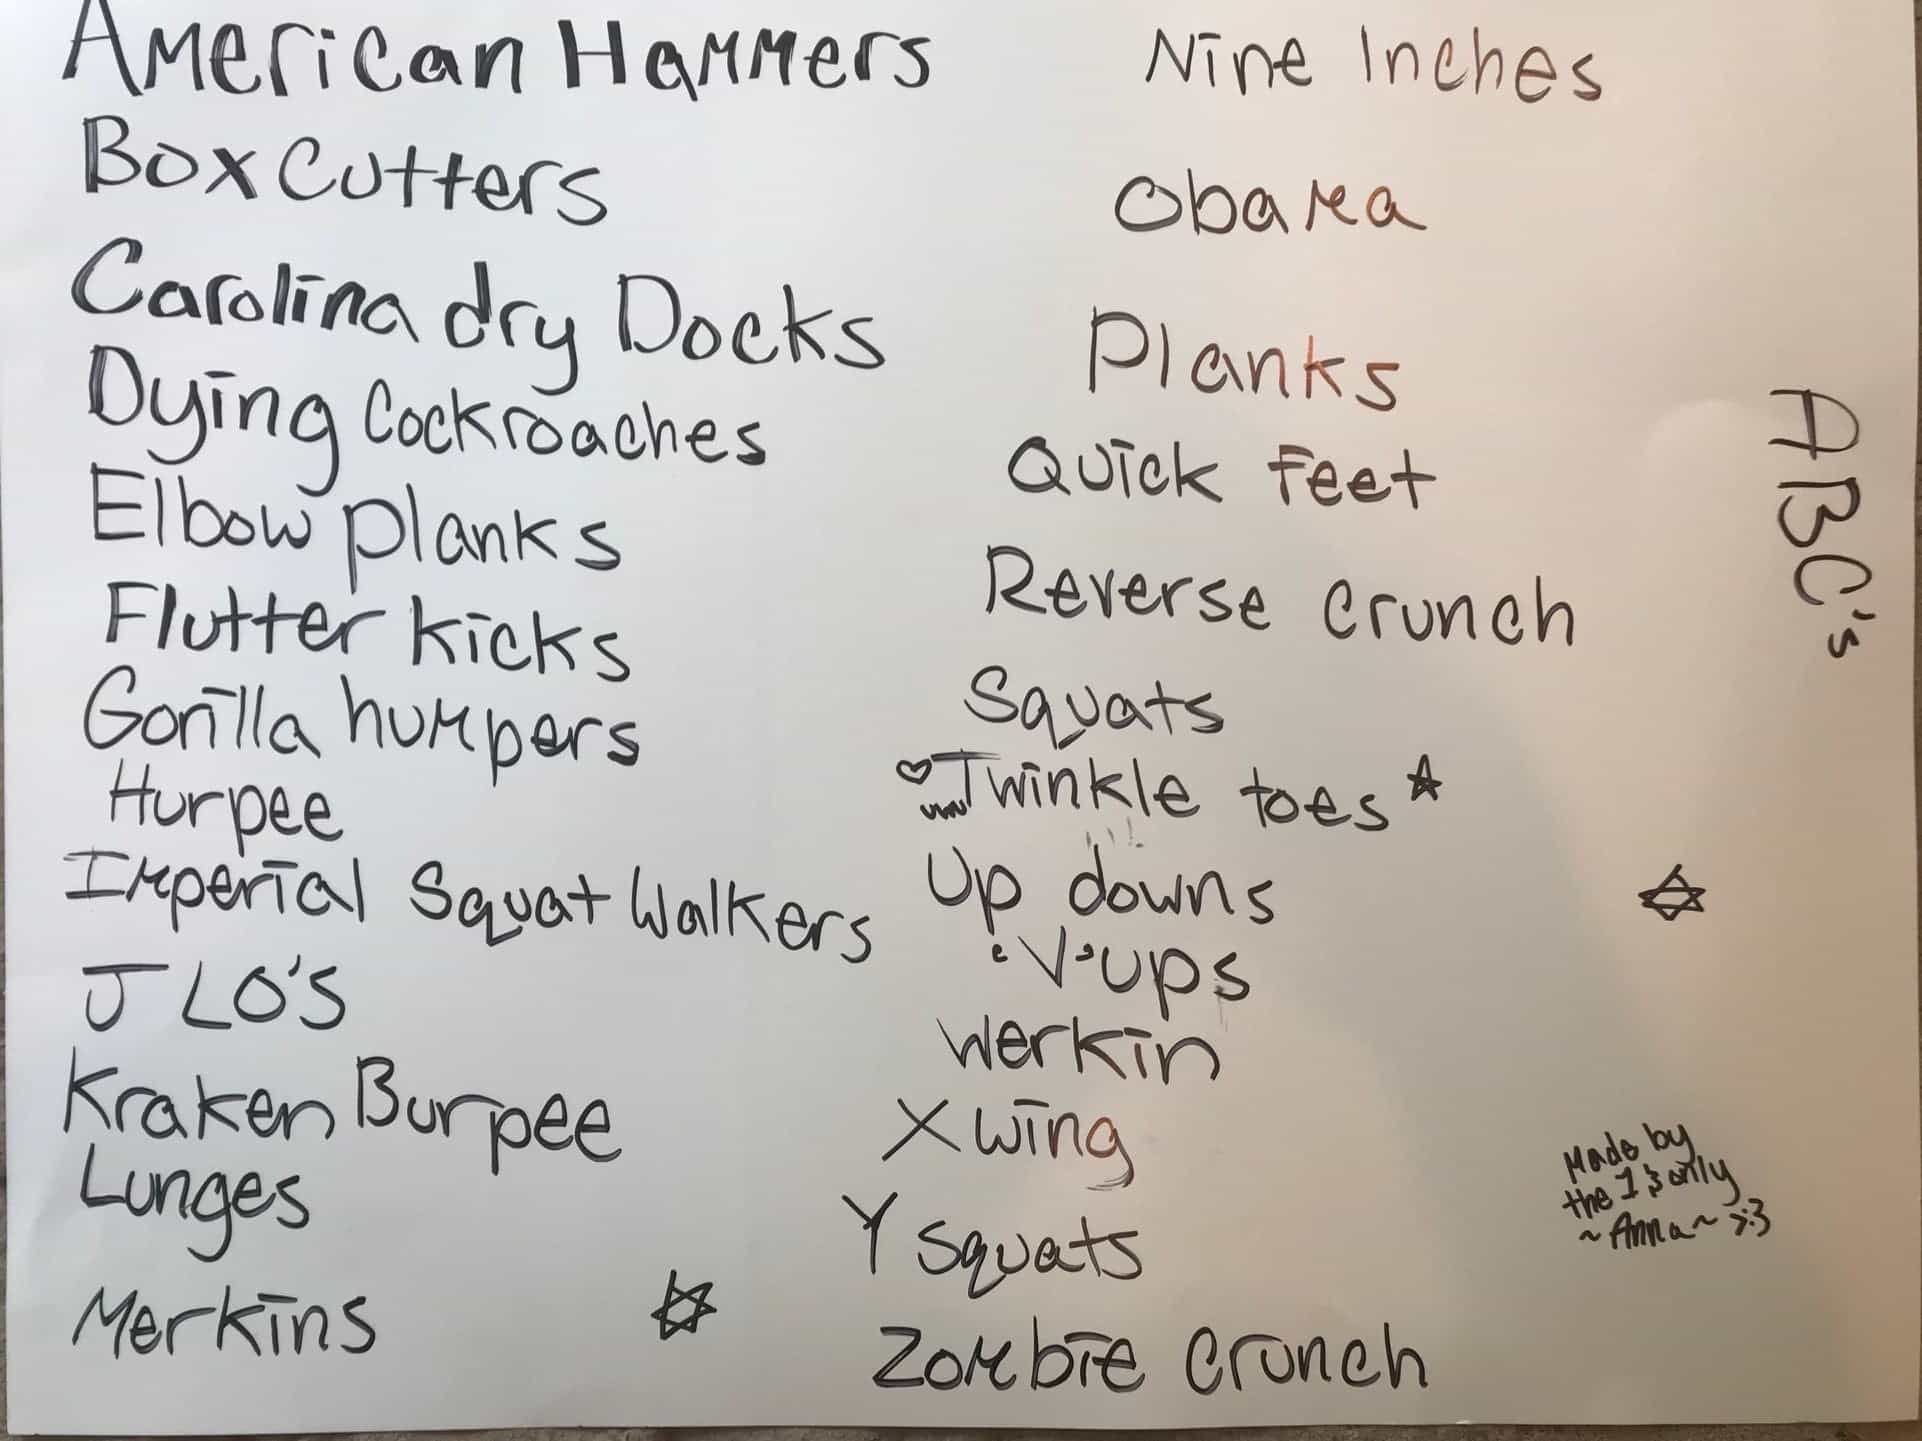 American Hammers
Box Cutters
Carolina dry Docks
Dying Cockroaches
Elbow planks
Flutter kicks
Gorilla humpers
Hurpee
Imperial Squat Walkers
J LO's
Kraken Burpee
Lunges
Merkins
Nine Inches
Obama
Planks
Quick Feet
Reverse crunch
Squats
Twinkle toes
Up downs
'V'ups
Werkin
X wing
Y squats
Zombie crunch
ABC's
Made by
the 1 & only
~Anna~ >:3